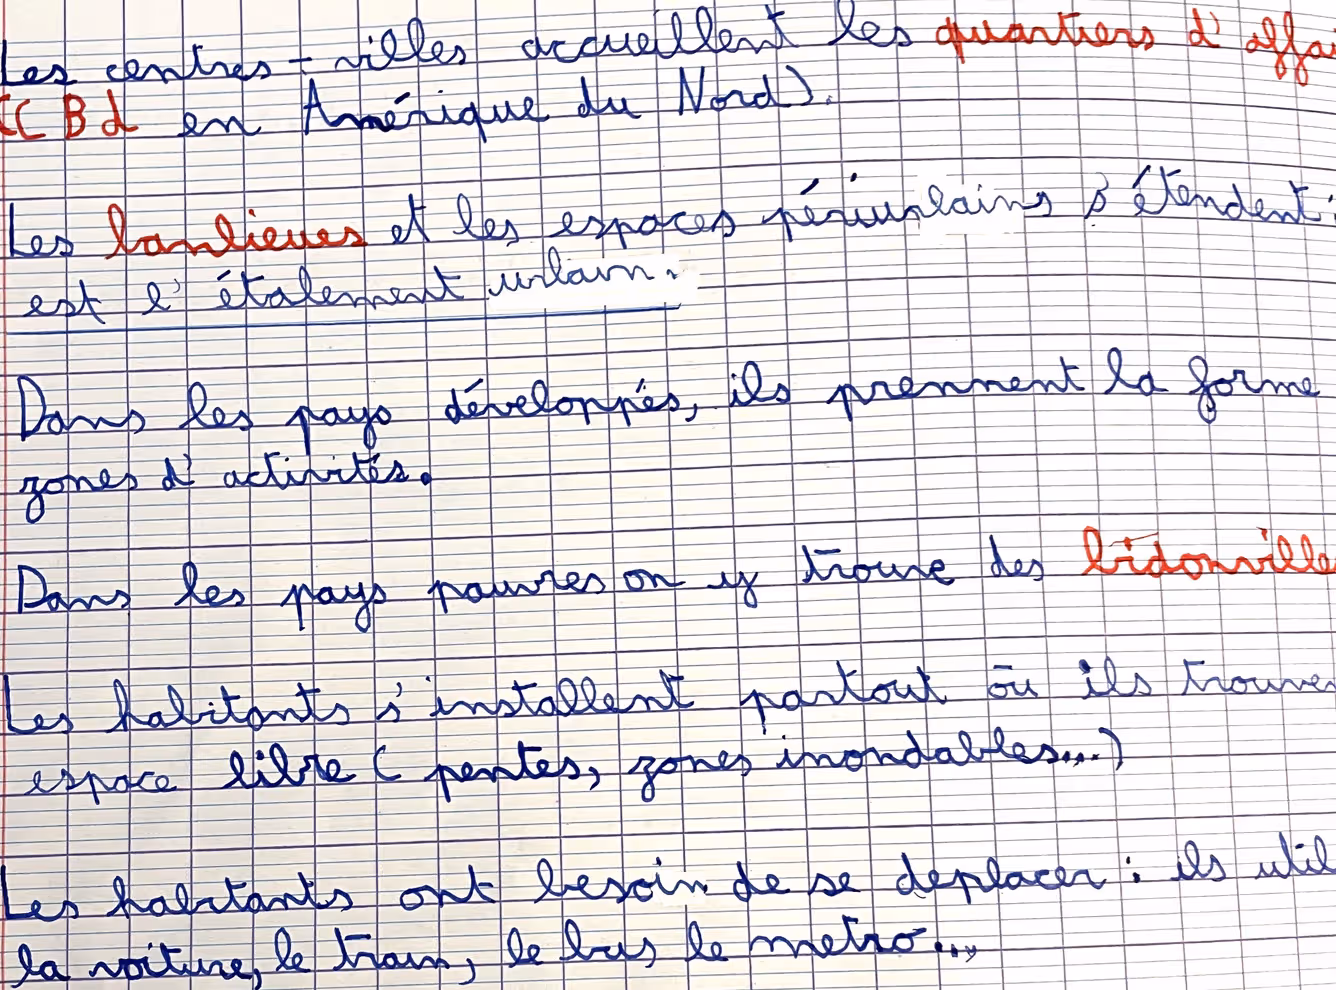 Les centres-villes accueillent les quartiers d'affai
(CBd en Amérique du Nord).
Les banlieues et les espaces périurbains s'étendent :
est l'étalement urbain.
Dans les pays développés, ils prennent la forme
zones d'activités.
Dans les pays pauvres on y trouve des bidonville
Les habitants s'installent partout où ils trouve
espace libre (pentes, zones inondables...)
Les habitants ont besoin de se deplacer : ils util
la voiture, le train, le bus le metro...